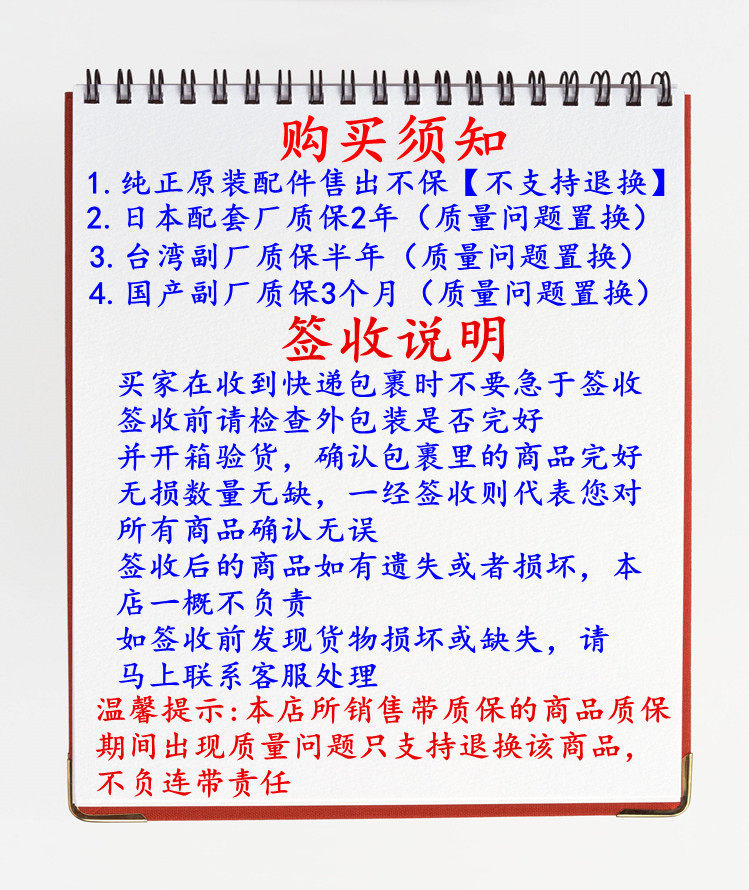 购买须知
1.纯正原装配件售出不保【不支持退换】
2.日本配套厂质保2年（质量问题置换）
3.台湾副厂质保半年（质量问题置换）
4.国产副厂质保3个月（质量问题置换）
签收说明
买家在收到快递包裹时不要急于签收
签收前请检查外包装是否完好
并开箱验货，确认包裹里的商品完好
无损数量无缺，一经签收则代表您对
所有商品确认无误
签收后的商品如有遗失或者损坏，本
店一概不负责
如签收前发现货物损坏或缺失，请
马上联系客服处理
温馨提示:本店所销售带质保的商品质保
期间出现质量问题只支持退换该商品，
不负连带责任